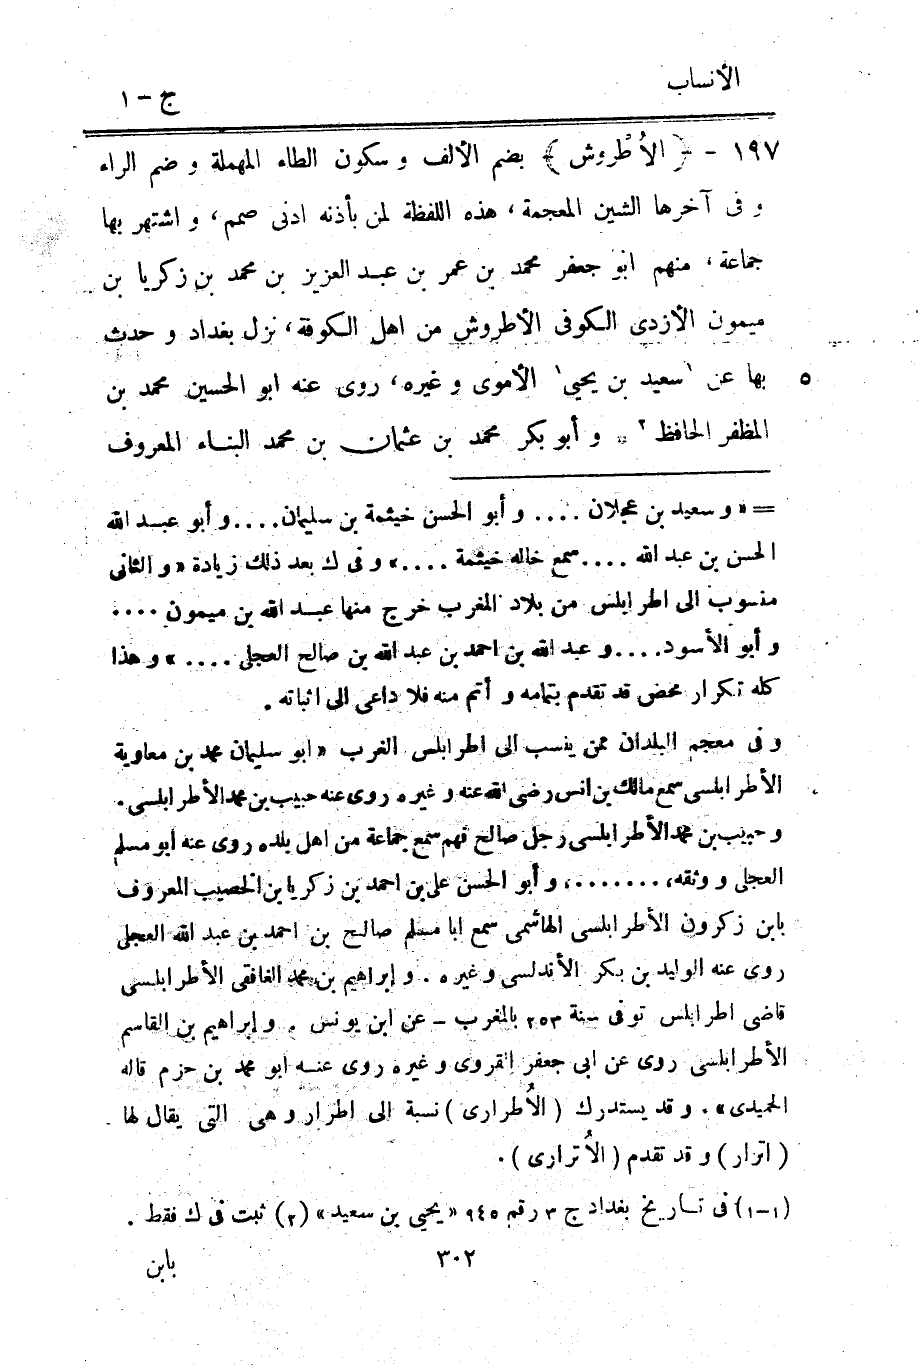 الأنساب
ج - ١
١٩٧ - ﴿ الأُطْروش ﴾ بضم الألف و سكون الطاء المهملة و ضم الراء
و فى آخرها الشين المعجمة، هذه اللفظة لمن بأذنه ادنى صمم، و اشتهر بها
جماعة، منهم ابو جعفر محمد بن عمر بن عبد العزيز بن محمد بن زكريا بن
ميمون الأزدى الكوفى الأطروش من اهل الكوفة، نزل بغداد و حدث
٥ بها عن ١سعيد بن يحيى١ الأموى و غيره، روى عنه ابو الحسين محمد بن
المظفر الحافظ ٢ ۞ و أبو بكر محمد بن عثمان بن محمد البناء المعروف
= « و سعيد بن عجلان .... و أبو الحسن خيثمة بن سليمان .... و أبو عبد الله
الحسن بن عبد الله .... سمع خاله خيثمة .... » و فى ك بعد ذلك زيادة « و الثانى
منسوب الى اطرابلس من بلاد المغرب خرج منها عبد الله بن ميمون ....
و أبو الأسود .... و عبد الله بن احمد بن عبد الله بن صالح العجلى .... » و هذا
كله تكرار محض قد تقدم بتمامه و أتم منه فلا داعى الى اثباته .
و فى معجم البلدان ممن ينسب الى اطرابلس الغرب « ابو سليمان محمد بن معاوية
الأطرابلسى سمع مالك بن انس رضى الله عنه و غيره روى عنه حبيب بن محمد الأطرابلسى .
و حبيب بن محمد الأطرابلسى رجل صالح فهم سمع جماعة من اهل بلده روى عنه أبو مسلم
العجلى و وثقه، .......، و أبو الحسن على بن احمد بن زكريا بن الخصيب المعروف
بابن زكرون الأطرابلسى الهاشمى سمع ابا مسلم صالح بن احمد بن عبد الله العجلى
روى عنه الوليد بن بكر الأندلسى و غيره . و إبراهيم بن محمد الغافقى الأطرابلسى
قاضى اطرابلس توفى سنة ٢٥٣ بالمغرب - عن ابن يونس . و إبراهيم بن القاسم
الأطرابلسى روى عن ابى جعفر القروى و غيره روى عنه ابو محمد بن حزم قاله
الحميدى » . و قد يستدرك ( الأُطرارى ) نسبة الى اطرار و هى التى يقال لها
( اترار ) و قد تقدم ( الأُترارى ) .
(١-١) فى تاريخ بغداد ج ٣ رقم ٩٤٥ « يحيى بن سعيد » (٢) ثبت فى ك فقط .
٣٠٢
بابن